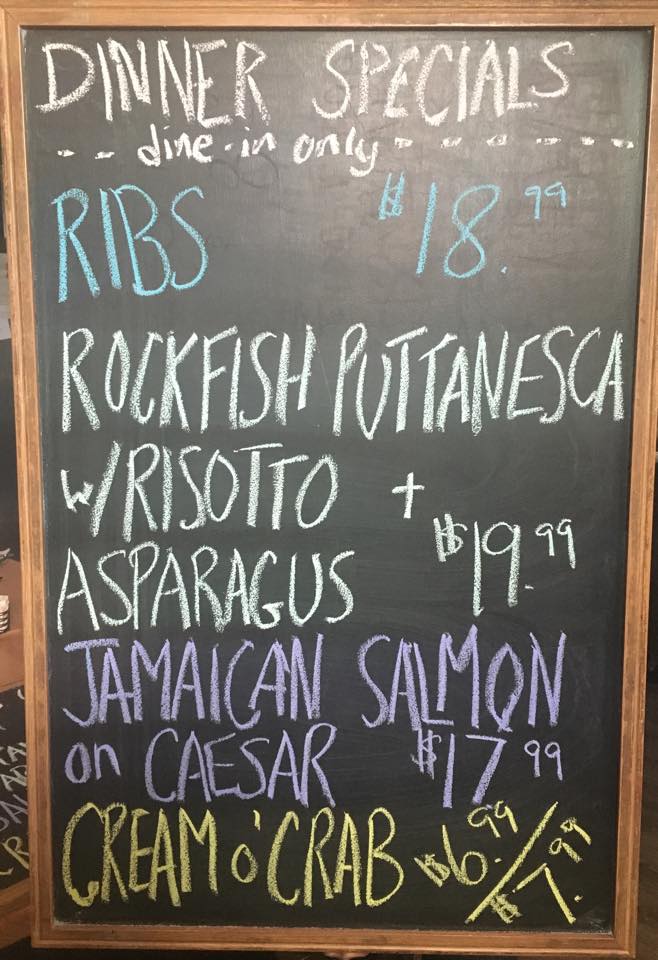 DINNER SPECIALS
- - dine-in only - - - - - -
RIBS $18.99
ROCKFISH PUTTANESCA
w/RISOTTO +
ASPARAGUS $19.99
JAMAICAN SALMON
on CAESAR $17.99
CREAM o' CRAB $6.99/$7.99